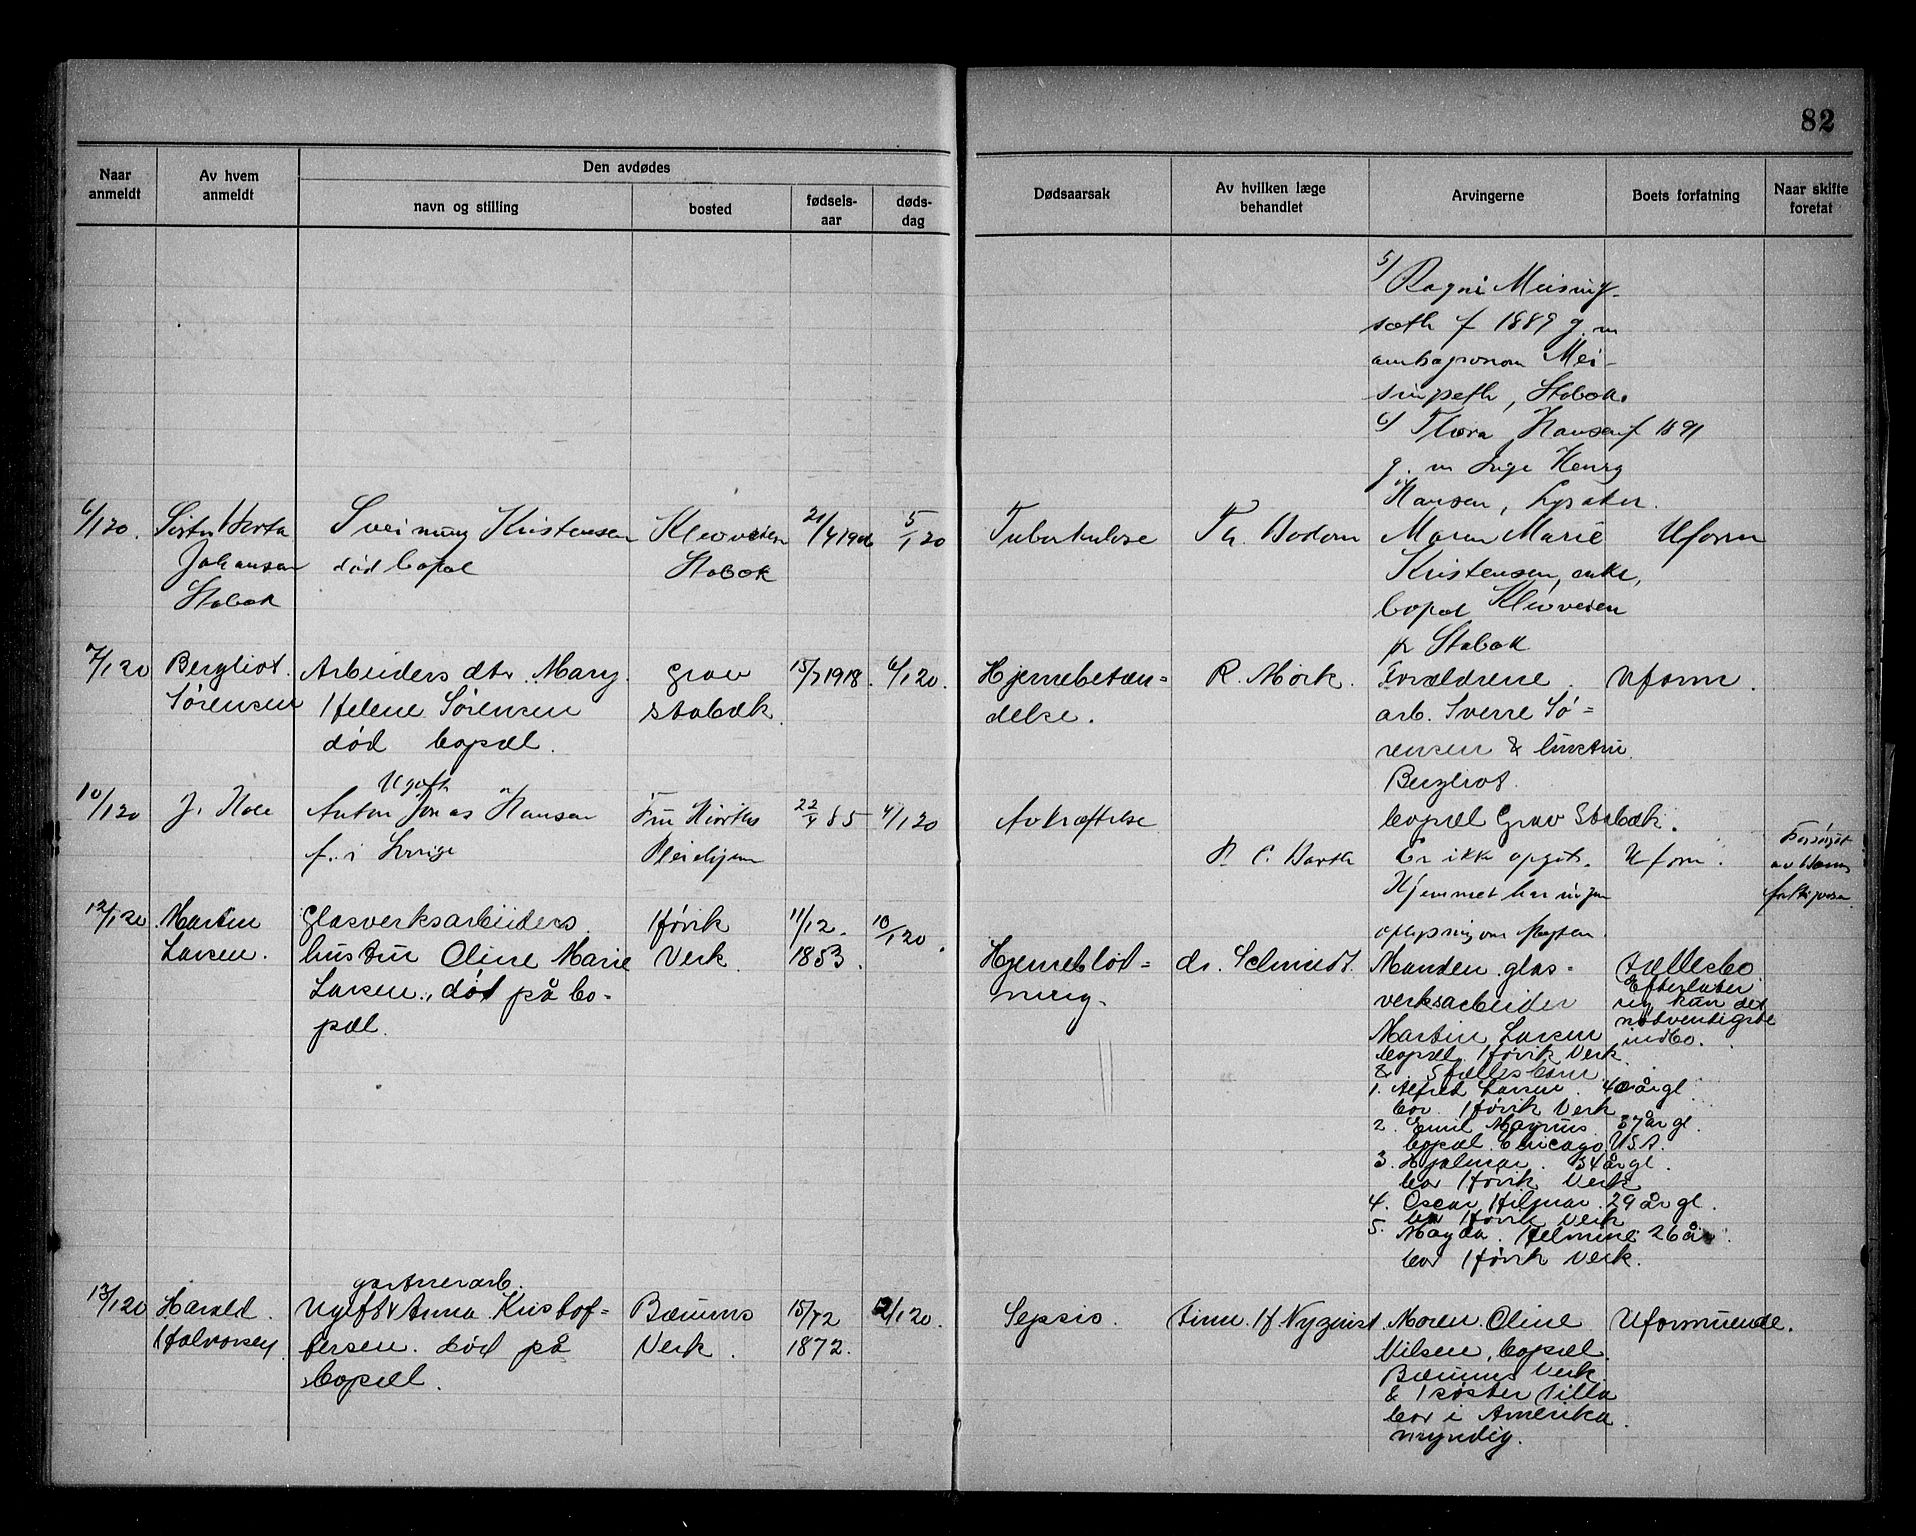 82
Naar anmeldt
Av hvem anmeldt
Den avdødes
navn og stilling
bosted
fødsels-aar
døds-dag
Dødsaarsak
Av hvilken læge behandlet
Arvingerne
Boets forfatning
Naar skifte foretat
5/ Ragni Meising-
sæth f 1889 g. m
Mei-
, Stabæk.
6/ Thora Hansen f 1891
g. m Inge Henry
Hansen, Lysaker.
6/1 20.
Johansen
Stabæk
Sveinung Kristensen
død bopæl
Kleivveien
Stabæk
5/1 20
Tuberkulose
Th. Bodom
Maren Marie
Kristensen, enke,
bopæl Kleivveien
pr Stabæk
Uform
7/1 20
Bergliot
Sørensen
Arbeiders dtr. Mary
Helene Sørensen
død bopæl.
Grav
Stabæk.
15/7 1918.
6/1 20.
Hjernebetæn=
delse.
R. Mørk.
Forældrene
arb. Sverre Sø=
rensen & hustru
Bergliot.
bopæl Grav Stabæk.
Uform.
10/1 20
J. Hole
Ugift
Anton Jonas Hansen
f. i Sverige
Fru Hiorths
Pleiehjem
4/1 20
Avkræftelse
Barth
Er ikke opgit.
Hjemmet har ingen
oplysning om slegten.
Uform.
Forsørget
av Bærum
12/1 20
Martin
Larsen.
Glasverksarbeiders
hustru Oline Marie
Larsen., død på bo-
pæl.
Høvik
Verk.
11/12.
1853.
10/1 20.
Hjerneblød=
ning.
dr. Schmidt.
Manden glas-
verksarbeider
Martin Larsen
bopæl. Høvik Verk
& 5 fællesbarn.
1. Alfred Larsen. 40 årgl.
bor. Høvik Verk
2. Emil Magnus 37 år gl.
bopæl. Chicago, USA.
3. Hjalmar. 34 år gl.
bor Høvik Verk
4. Oscar Hilmar. 29 år gl.
bor Høvik Verk
5. Magda. Helmine 26 år
bor Høvik Verk.
Fællesbo
Efterlater
sig kun det
nødvendigste
indbo.
13/1 20
Harald
Halvorsen
gartnerarb.
Ugift Anna Kristof=
fersen. død på
bopæl.
Bærums
Verk.
1872.
12/1 20.
Sepsis.
Finn. H. Nyquist.
Maren. Oline
Nilsen, bopæl.
Bærums Verk
& 1 søster Tilla
bor i Amerika.
myndig.
Uformuende.